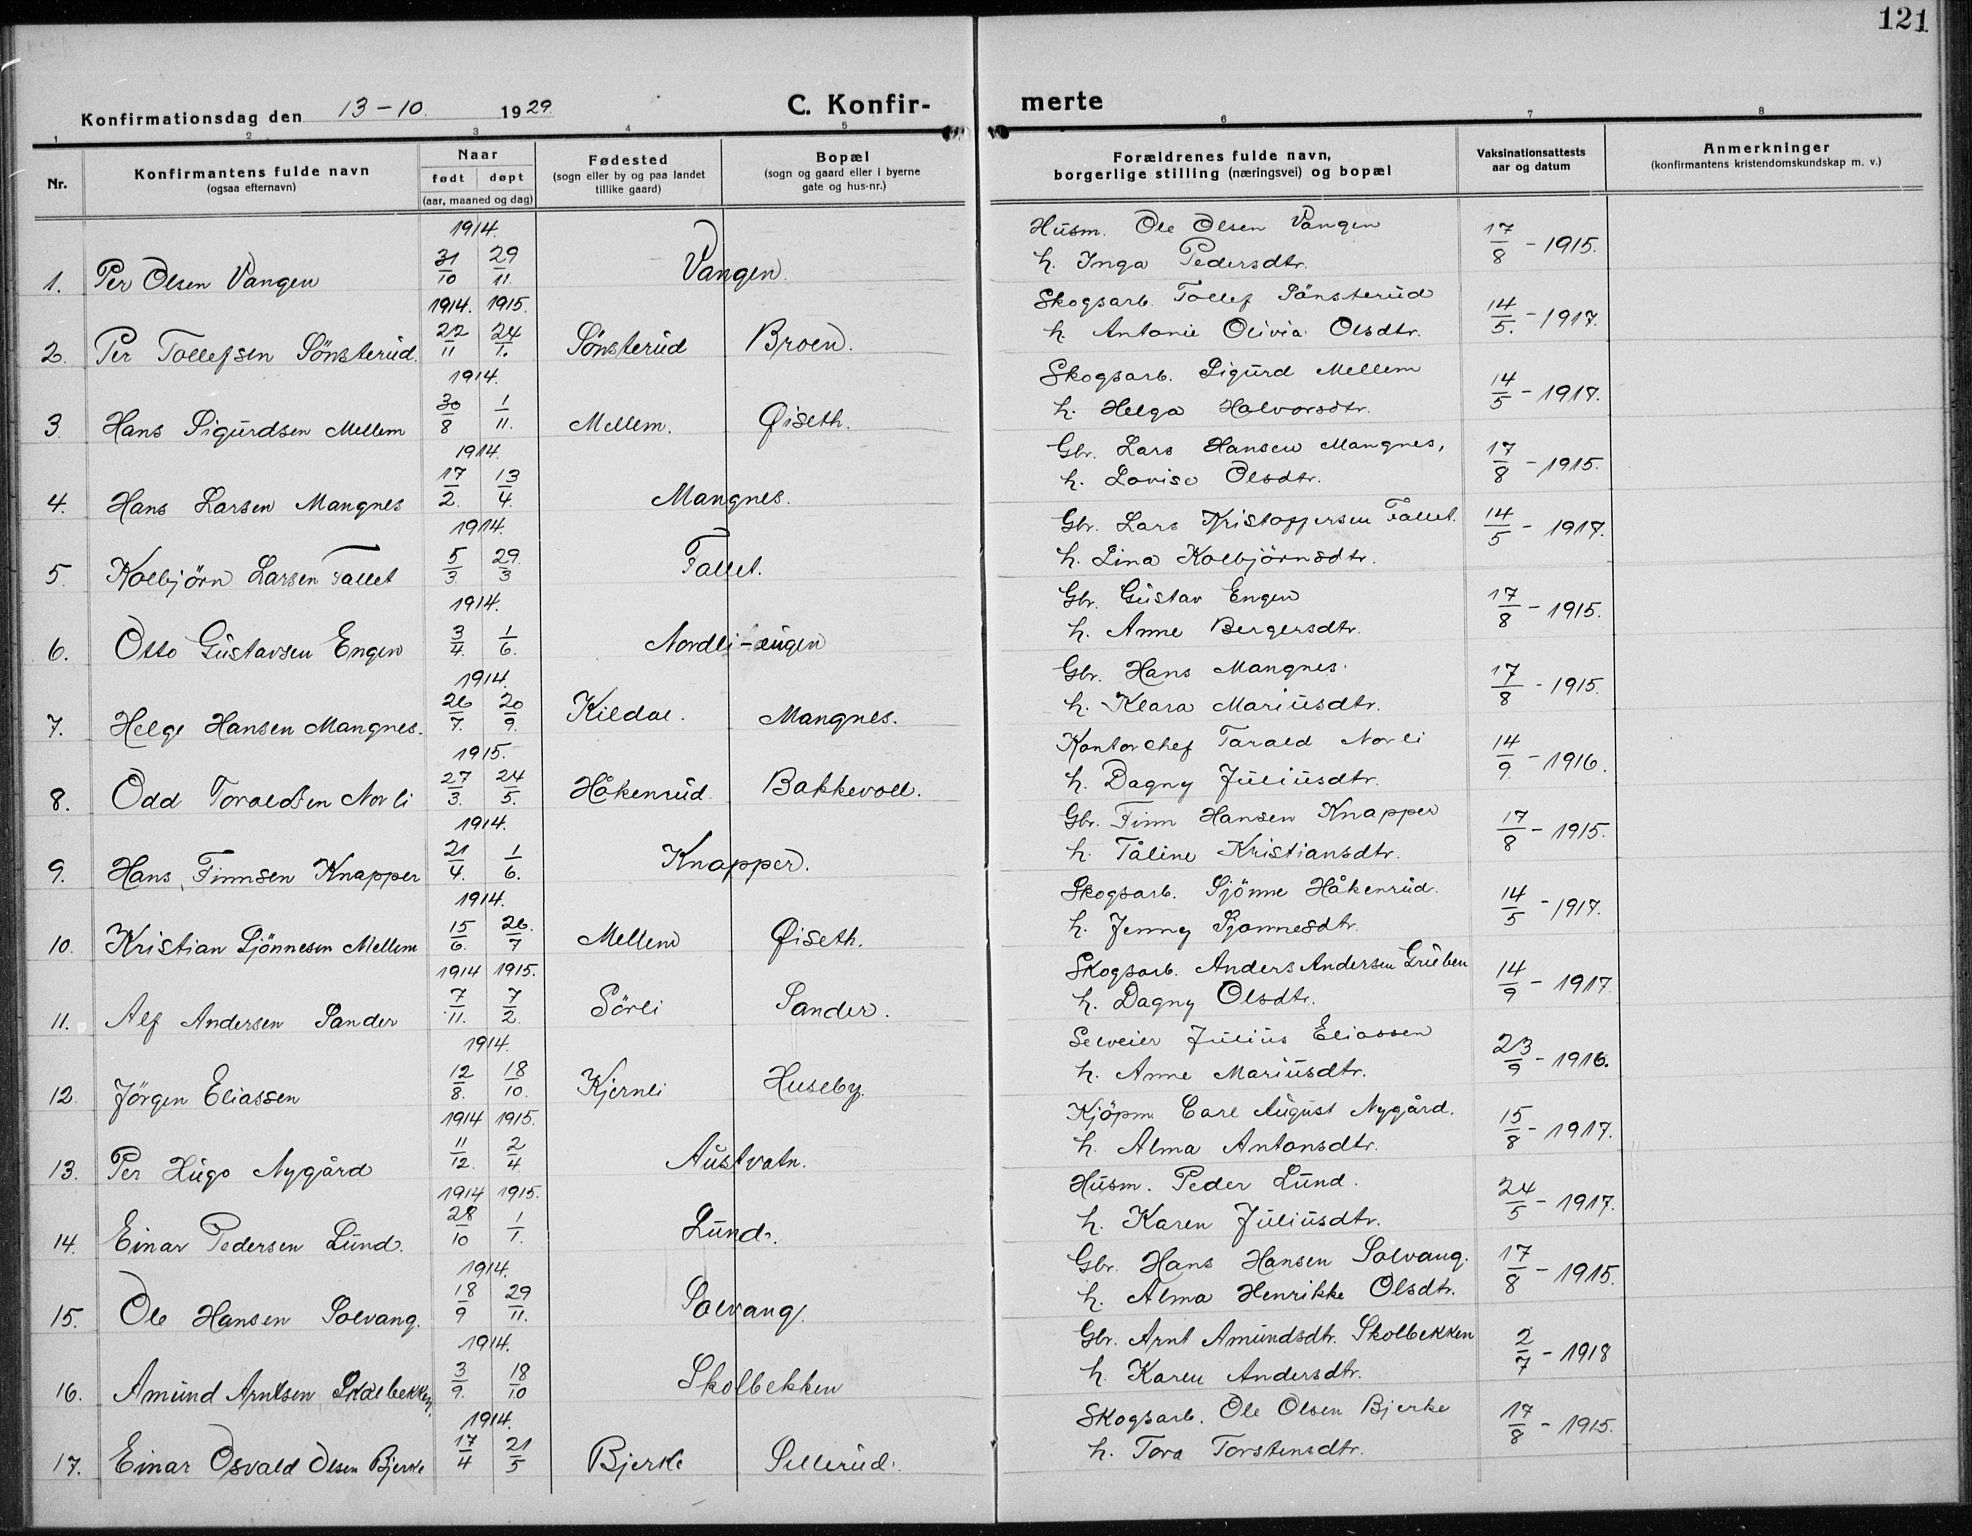 121
Konfirmationsdag den 13-10. 1929.
C. Konfirmerte
1 2 3 4 5 6 7 8
Nr. | Konfirmantens fulde navn (ogsaa efternavn) | Naar født døpt (aar, maaned og dag) | Fødested (sogn eller by og paa landet tillike gaard) | Bopæl (sogn og gaard eller i byerne gate og hus-nr.) | Forældrenes fulde navn, borgerlige stilling (næringsvei) og bopæl | Vaksinationsattests aar og datum | Anmerkninger (konfirmantens kristendomskundskap m. v.)
1914. Husm. Ole Olsen Vangen
1. Per Olsen Vangen 31/10 29/11. Vangen. h. Inga Pedersdtr. 17/8 - 1915.
1914. 1915. Skogsarb. Tollef Sönsterud
2. Per Tollefsen Sönsterud. 22/11 24/1. Sönsterud Broen. h. Antonie Olivia Olsdtr. 14/5. - 1917.
1914. Skogsarb. Sigurd Mellem
3. Hans Sigurdsen Mellem 30/8 1/11. Mellem. Øiseth. h. Helga Halvorsdtr. 14/5 - 1917.
1914. Gbr. Lars Hansen Mangnes,
4. Hans Larsen Mangnes 17/2. 13/4. Mangnes. h. Lovise Olsdtr. 17/8 - 1915.
1914. Gbr. Lars Kristoffersen Fallet.
5. Kolbjörn Larsen Fallet 5/3 29./3 Fallet. h. Lina Kolbjörnsdtr. 14/5 - 1917.
1914. Gbr. Gustav Engen
6. Otto Gustavsen Engen 3/4. 1/6. Nordli-engen h. Anne Bergersdtr. 17/8 - 1915.
1914. Gbr. Hans Mangnes.
7. Helge Hansen Mangnes. 26/7. 20/9. Kildal. Mangnes. h. Klara Mariusdtr. 17/8 - 1915.
1915. Kontorchef Tarald Norli
8. Odd Toraldsen Norli 27/3. 24/5. Håkenrud. Bakkevoll. h. Dagny Juliusdtr. 14/9. - 1916.
1914. Gbr. Finn Hansen Knapper
9. Hans Finnsen Knapper 21/4. 1/6. Knapper. h. Tåline Kristiansdtr. 17/8 - 1915.
1914. Skogsarb. Sjönne Håkenrud.
10. Kristian Sjönnesen Mellem 15/6. 26./7 Mellem Øiseth. h. Jenny Sjönnesdtr. 14/5 - 1917.
1914 1915. Skogsarb. Anders Andersen Gruben
11. Alf Andersen Sander 7/11. 7/2. Sörli Sander. h. Dagny Olsdtr. 14/9 - 1917
1914. Selveier Julius Eliassen
12. Jörgen Eliassen 12/8. 18/10. Kjernli Huseby. h. Anne Mariusdtr. 23/9 - 1916.
1914 1915. Kjöpm. Carl August Nygård.
13. Per Hugo Nygård 11/12. 2/4. Austvatn. h. Alma Antonsdtr. 15/8 - 1917.
1914 1915. Husm. Peder Lund.
14. Einar Pedersen Lund. 28/10 1/1. Lund. h. Karen Juliusdtr. 24/5 - 1917.
1914. Gbr. Hans Hansen Solvang.
15. Ole Hansen Solvang. 18/9 29/11. Solvang. h. Alma Henrikke Olsdtr. 17/8 - 1915.
1914. Gbr. Arnt Amundsdtr. Skolbekken
16. Amund Arntsen Skolbekken. 3/9. 18/10 Skolbekken h. Karen Andersdtr. 2/7 - 1918
1914. Skogsarb. Ole Olsen Bjerke
17. Einar Osvald Olsen Bjerke 17/4 21/5 Bjerke Sillerud. h. Tora Torstensdtr. 17/8 - 1915.